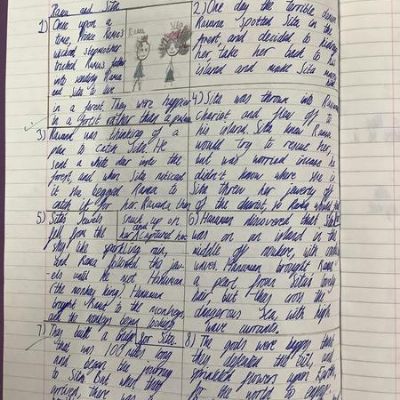 Rama and Sita
1) Once upon a
time, Prince Rama's
wicked stepmother
Rama
into
and Sita to live
in a forest. They were happier
in a forest rather than a palace
3) Ravana was thinking of a
plan to catch Sita. He
sent a white deer into the
forest, and when Sita noticed
it she begged Rama to
catch it for her. Ravana then
snuck up on
and captured her
5) Sita's Jewels
fell from the
sky like sparkling rain,
and Rama followed the jew-
els until he met Hanuman
(the monkey king). Hanuman
brought Rama to the monkeys
7) They built a bridge for Sita
that was 100 miles long
and began the journey
to Sita. But when they
arrived, there was a
Rama
Sita
2) One day the terrible demon
Ravana spotted Sita in the
forest, and decided to kidnap
her, take her back to his
island and make Sita marry
him.
4) Sita was thrown into Ravana's
Chariot and flew off to
his island. Sita knew Rama
would try to rescue her,
but was worried incase he
didn't know where she is
Sita threw her jewelry off
of the chariot, so Rama would find
6) Hanuman discovered that Sita
was on an island in the
middle off nowhere, with
waves. Hanuman brought Rama
a pearl from Sita's lovely
hair, but they cross the
dangerous Sea, with high
wave currents.
8) The gods were happy that
they defeated the evil, and
sprinkled flowers upon Earth
for the world to enjoy.